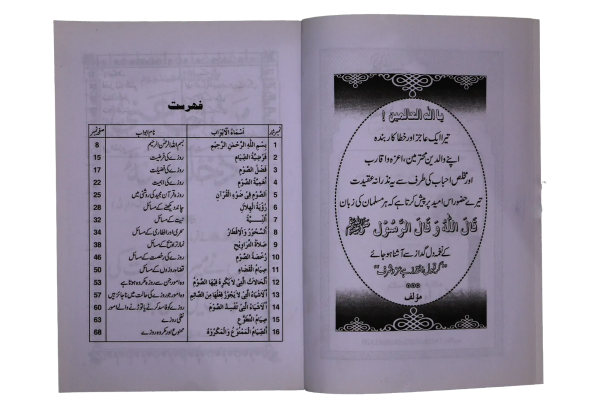 یا الٰہ العالمین !
تیرا ایک عاجز اور خطا کار بندہ
اپنے والدین محترمین، اعزہ و اقارب
اور مخلص احباب کی طرف سے یہ نذرانہ عقیدت
تیرے حضور اس امید پر پیش کرتا ہے کہ ہر مسلمان کی زبان
قَالَ اللّٰهُ وَ قَالَ الرَّسُوْل ﷺ
کے نغمہ دل گداز سے آشنا ہو جائے
مؤلف
فہرست
نمبر شمار اَسْمَاءُ الْاَبْوَابِ نام ابواب صفحہ نمبر
1 بِسْمِ اللّٰهِ الرَّحْمٰنِ الرَّحِيْمِ بسم اللہ الرحمٰن الرحیم 8
2 فَرْضِيَّةُ الصِّيَامِ روزے کی فرضیت 15
3 فَضْلُ الصَّوْمِ روزے کی فضیلت 17
4 اَهَمِّيَّةُ الصَّوْمِ روزے کی اہمیت 22
5 اَلصَّوْمُ فِيْ ضَوْءِ الْقُرْآنِ روزہ قرآن مجید کی روشنی میں 25
6 رُؤْيَةُ الْهِلَالِ چاند دیکھنے کے مسائل 28
7 اَلنِّيَّةُ نیت کے مسائل 32
8 اَلسَّحُوْرُ وَ الْاِفْطَارُ سحری اور افطاری کے مسائل 34
9 صَلَاةُ التَّرَاوِيْحِ نماز تراویح کے مسائل 39
10 رُخْصَةُ الصَّوْمِ روزے کی رخصت کے مسائل 46
11 صِيَامُ الْقَضَاءِ قضا روزوں کے مسائل 50
12 اَلْحَالَاتُ الَّتِيْ لَا يُكْرَهُ فِيْهَا الصَّوْمُ وہ امور جن سے روزہ مکروہ نہیں ہوتا 53
13 اَلْاَشْيَاءُ الَّتِيْ لَا يَجُوْزُ فِعْلُهَا مِنَ الصَّائِمِ وہ امور جو روزے کی حالت میں ناجائز ہیں 57
14 اَلْاَشْيَاءُ الَّتِيْ تُفْسِدُ الصَّوْمَ روزے کو فاسد کرنے یا توڑنے والے امور 60
15 صِيَامُ التَّطَوُّعِ نفلی روزے 63
16 اَلصِّيَامُ الْمَمْنُوْعُ وَ الْمَكْرُوْهُ ممنوع اور مکروہ روزے 68